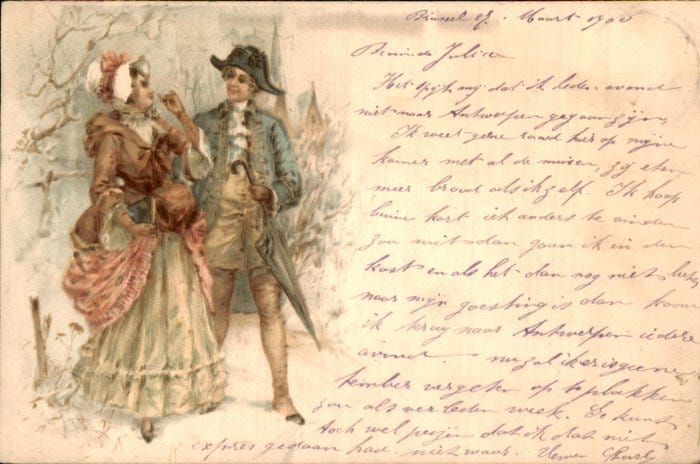 Brussel 27. Maart 1900
Beminde Julie
Het spijt mij dat ik heden avond
niet naar Antwerpen gegaan zijn,
Ik weet geen raad hier op mijne
kamer met al de muizen, zij eten
meer brood als ik zelf. Ik hoop
binne kort iets anders te vinden
zou niet dan gaan ik in den
kost en als het dan nog niet
naar mijn goesting is dan kom
ik terug naar Antwerpen iedere
avond. nu zal ik er is geene
timber vergeten op te plakken
zou als verleden week. Ge kunt
toch wel peizen dat ik dat niet
expres gedaan had. niet waar.